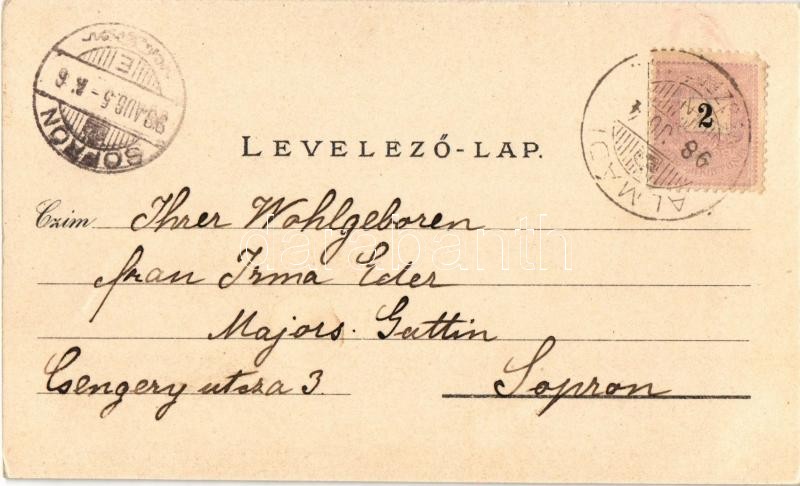 SOPRON
98 AUG. 5
E
ALMÁDI
98
2
LEVELEZŐ-LAP.
Czim Ihrer Wohlgeboren
frau Irma Eder
Majors. Gattin
Csengery utsza 3. Sopron
darabanth